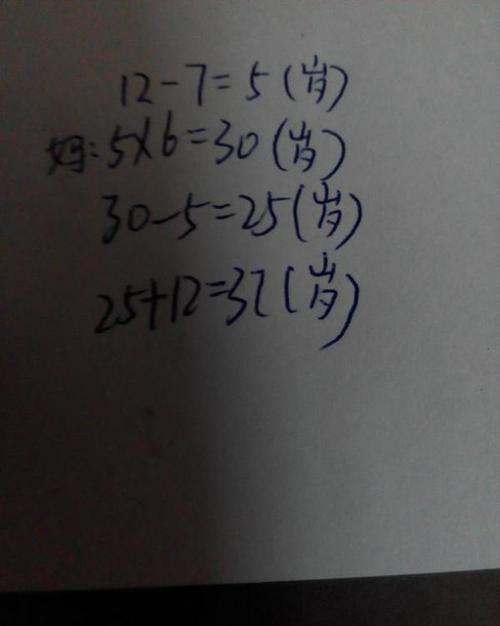 12-7=5(岁)
妈:5×6=30(岁)
30-5=25(岁)
25+12=37(岁)